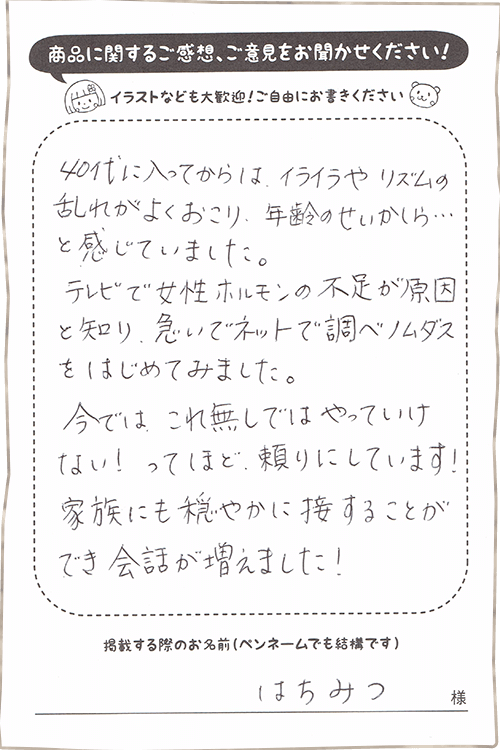 商品に関するご感想、ご意見をお聞かせください!
イラストなども大歓迎!ご自由にお書きください
40代に入ってからは、イライラや リズムの
乱れがよくおこり、年齢のせいかしら…
と感じていました。
テレビで女性ホルモンの不足が原因
と知り、急いでネットで調べノムダス
をはじめてみました。
今では、これ無しではやっていけ
ない!ってほど、頼りにしています!
家族にも穏やかに接することが
でき会話が増えました!
掲載する際のお名前(ペンネームでも結構です)
はちみつ 様